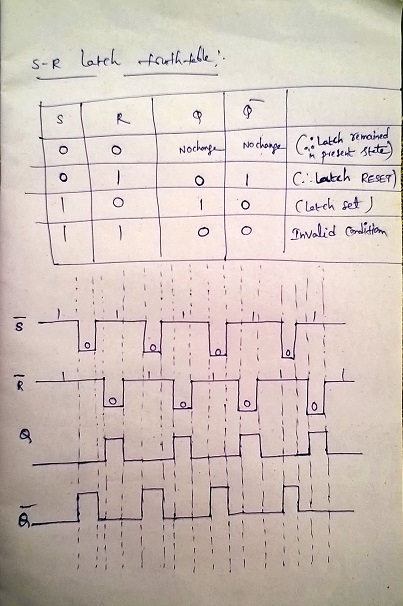 S-R Latch truth table:
S R Q Q̅
0 0 No change No change (∵ Latch remained in present state)
0 1 0 1 (∴ Latch RESET)
1 0 1 0 (Latch set)
1 1 0 0 Invalid Condition
S̅ 1 0 1 0 1 0 1 0 1
R̅ 1 0 1 0 1 0 1 0 1
Q
Q̅